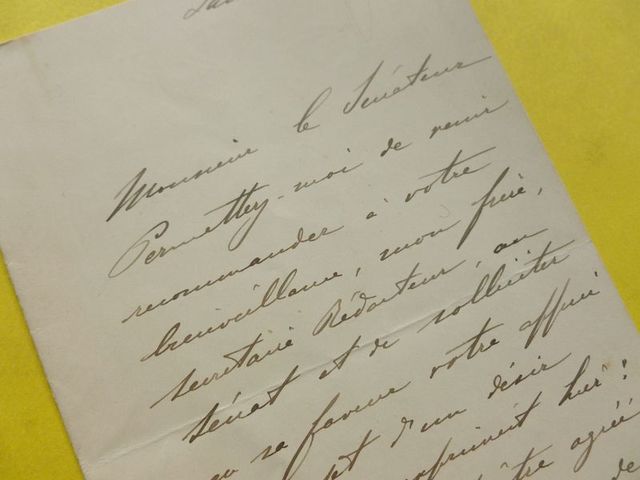 Monsieur le Sénateur
Permettez-moi de venir
recommander à votre
bienveillance, mon frère,
secrétaire Rédacteur, au
Sénat et de solliciter
en sa faveur votre appui
et d'un désir
expriment hier :
être agréé
de